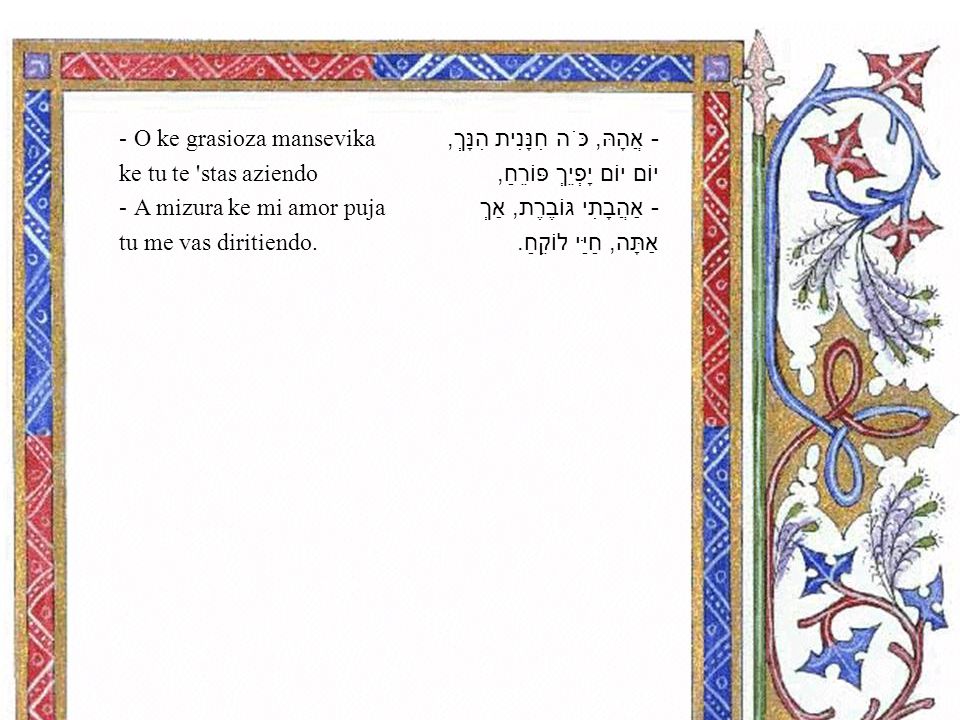 - O ke grasioza mansevika
ke tu te 'stas aziendo
- A mizura ke mi amor puja
tu me vas diritiendo.
- אֲהָהּ, כֹּה חִנָּנִית הִנָּךְ,
יוֹם יוֹם יָפְיֵךְ פּוֹרֵחַ,
- אַהֲבָתִי גּוֹבֶרֶת, אַךְ
אַתָּה, חַיַּי לוֹקֵחַ.